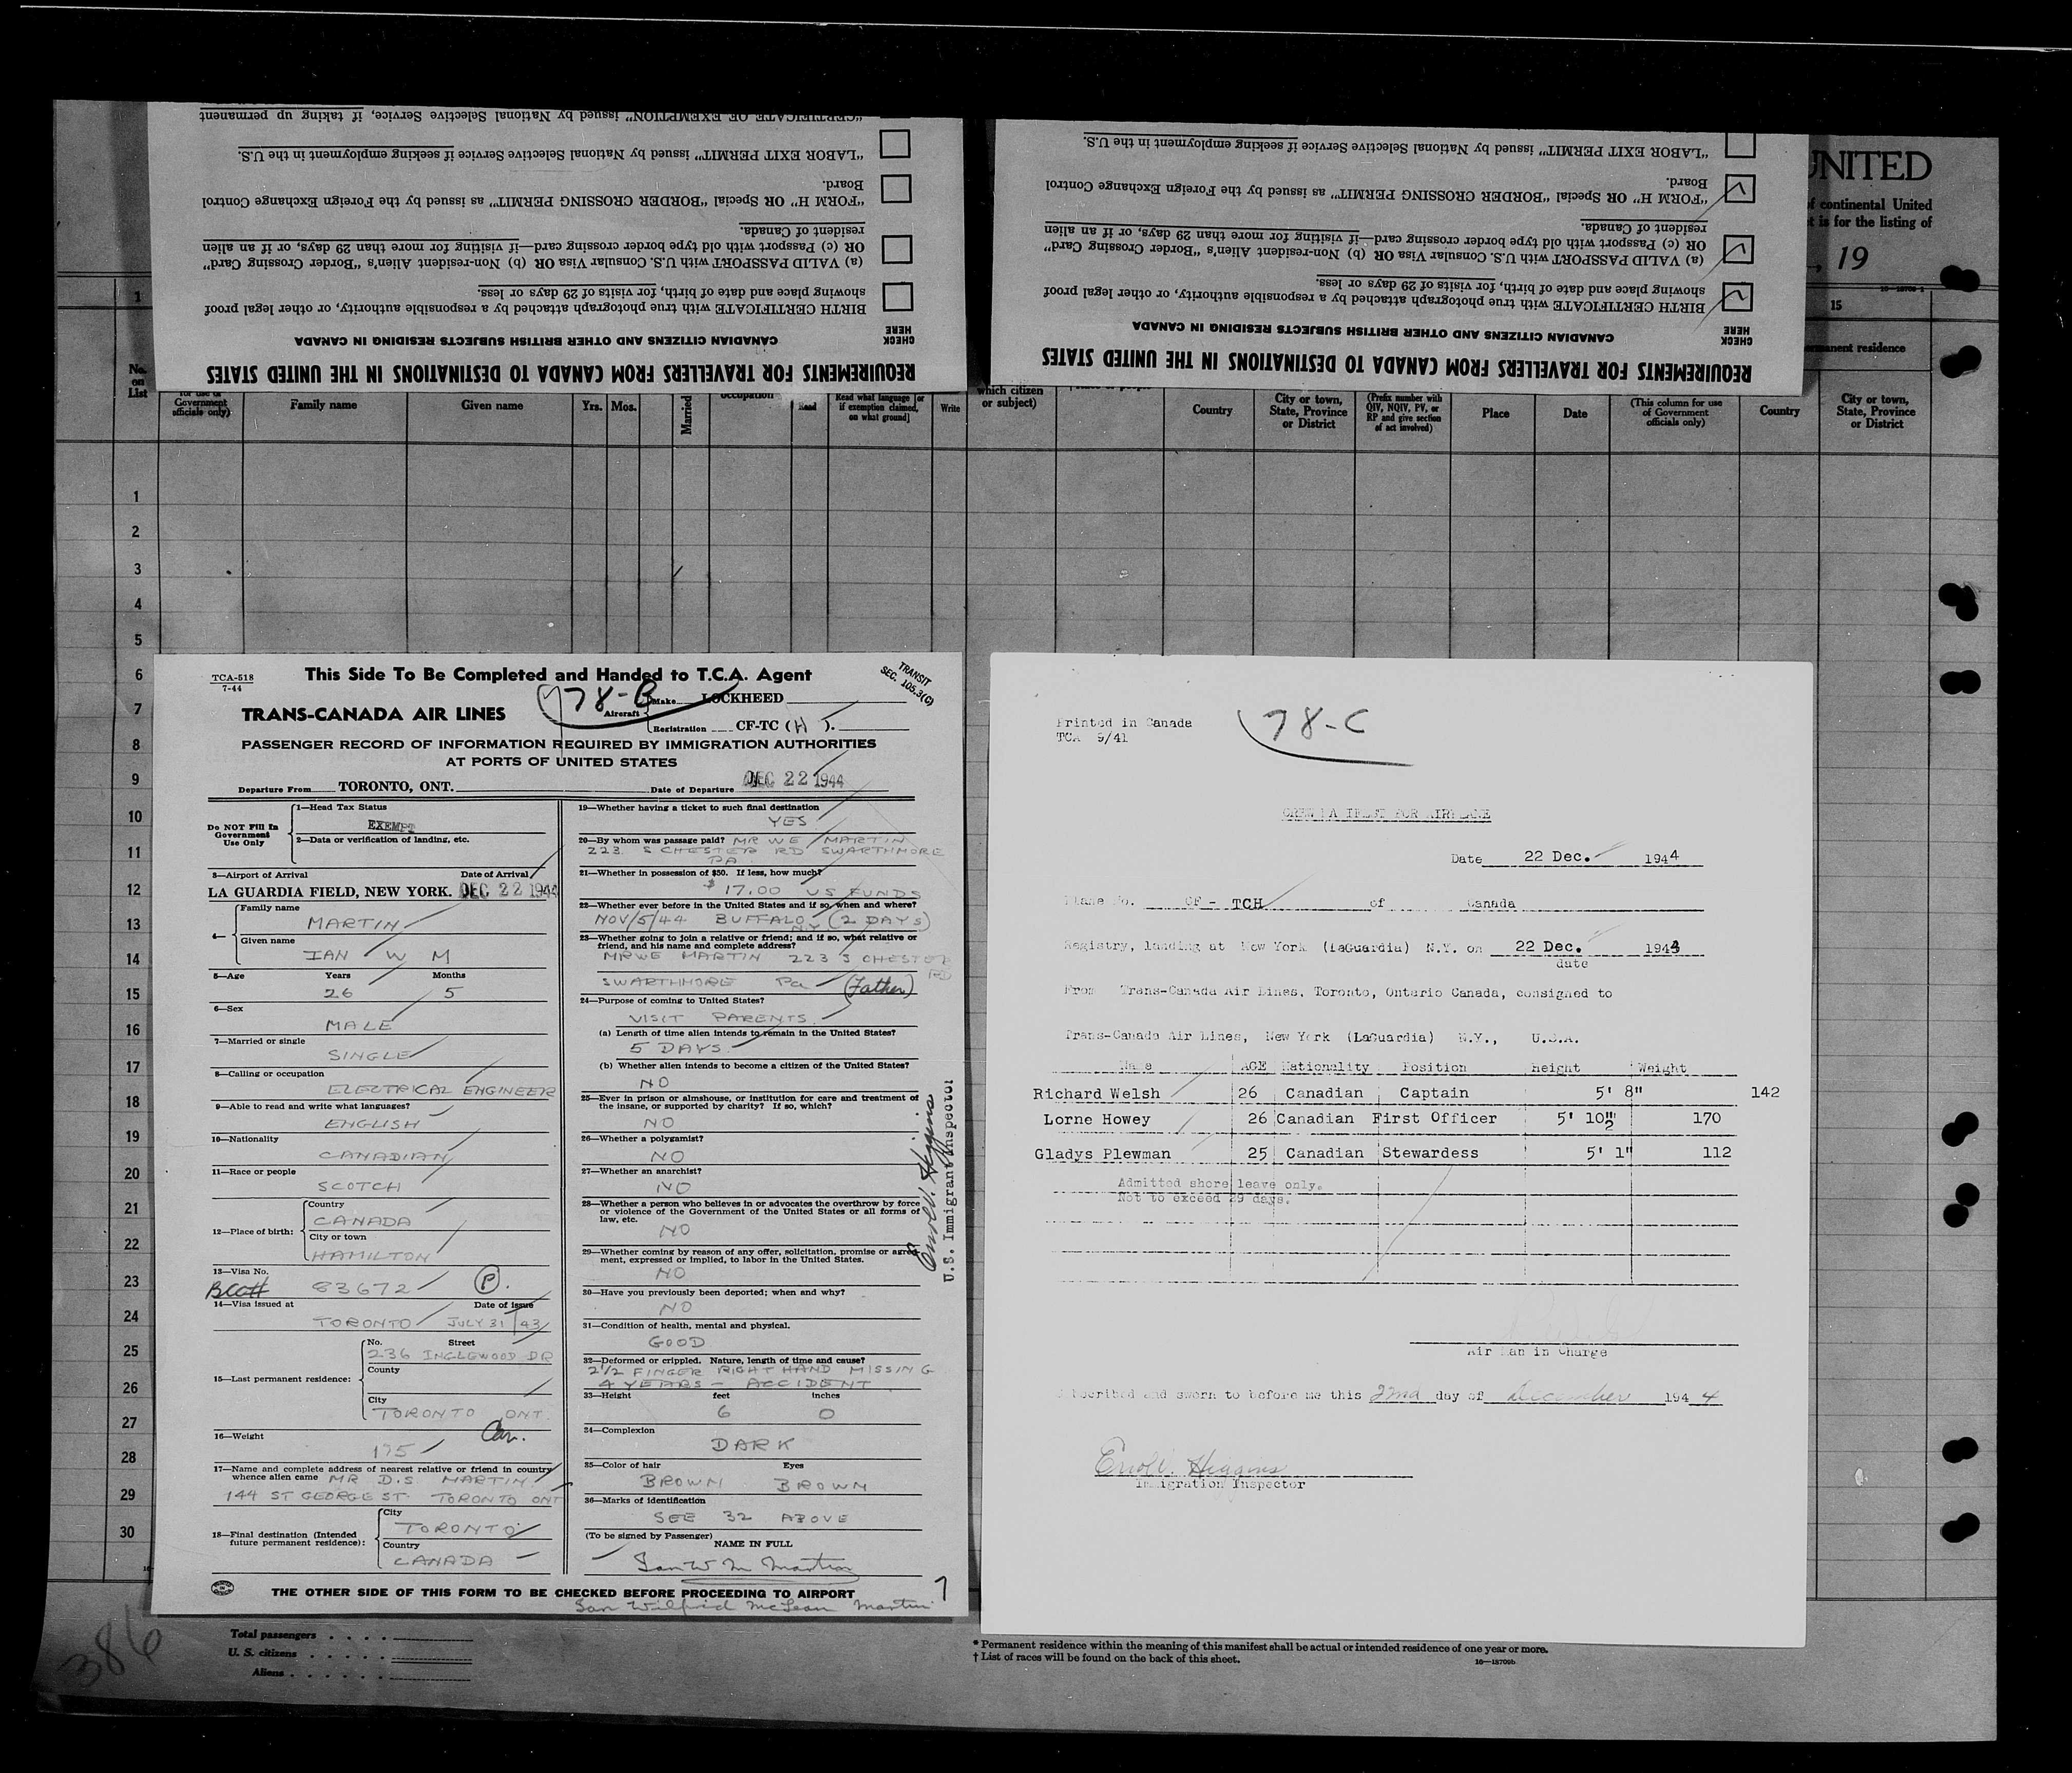 "CERTIFICATE OF EXEMPTION" issued by National Selective Service, if taking up permanent
"LABOR EXIT PERMIT" issued by National Selective Service if seeking employment in the U.S.
"FORM H" OR Special "BORDER CROSSING PERMIT" as issued by the Foreign Exchange Control
Board.
(a) VALID PASSPORT with U.S. Consular Visa OR (b) Non-resident Alien's "Border Crossing Card"
OR (c) Passport with old type border crossing card—if visiting for more than 29 days, or if an alien
resident of Canada.
BIRTH CERTIFICATE with true photograph attached by a responsible authority, or other legal proof
showing place and date of birth, for visits of 29 days or less.
CHECK HERE
CANADIAN CITIZENS AND OTHER BRITISH SUBJECTS RESIDING IN CANADA
REQUIREMENTS FOR TRAVELLERS FROM CANADA TO DESTINATIONS IN THE UNITED STATES
"LABOR EXIT PERMIT" issued by National Selective Service if seeking employment in the U.S.
"FORM H" OR Special "BORDER CROSSING PERMIT" as issued by the Foreign Exchange Control
Board.
(a) VALID PASSPORT with U.S. Consular Visa OR (b) Non-resident Alien's "Border Crossing Card"
OR (c) Passport with old type border crossing card—if visiting for more than 29 days, or if an alien
resident of Canada.
BIRTH CERTIFICATE with true photograph attached by a responsible authority, or other legal proof
showing place and date of birth, for visits of 29 days or less.
CHECK HERE
CANADIAN CITIZENS AND OTHER BRITISH SUBJECTS RESIDING IN CANADA
REQUIREMENTS FOR TRAVELLERS FROM CANADA TO DESTINATIONS IN THE UNITED STATES
UNITED
of continental United
is for the listing of
, 19
1
15
permanent residence
No. on List
Government officials only)
Family name
Given name
Yrs.
Mos.
Married
occupation
Read
Read what language [or if exemption claimed, on what ground]
Write
which citizen or subject)
Country
City or town, State, Province or District
(Prefix number with QIV, NQIV, PV, or RP and give section of act involved)
Place
Date
(This column for use of Government officials only)
Country
City or town, State, Province or District
1
2
3
4
5
6
7
8
9
10
11
12
13
14
15
16
17
18
19
20
21
22
23
24
25
26
27
28
29
30
TCA-518
7-44
This Side To Be Completed and Handed to T.C.A. Agent
TRANSIT
SEC. 105.3(C)
78-B
TRANS-CANADA AIR LINES
Aircraft
Make LOCKHEED
Registration CF-TC (H).
PASSENGER RECORD OF INFORMATION REQUIRED BY IMMIGRATION AUTHORITIES
AT PORTS OF UNITED STATES
Departure From TORONTO, ONT. Date of Departure DEC 22 1944
Do NOT Fill In Government Use Only
1—Head Tax Status
EXEMPT
2—Data or verification of landing, etc.
3—Airport of Arrival Date of Arrival
LA GUARDIA FIELD, NEW YORK. DEC 22 1944
4—
Family name
MARTIN
Given name
IAN W M
5—Age Years Months
26 5
6—Sex
MALE
7—Married or single
SINGLE
8—Calling or occupation
ELECTRICAL ENGINEER
9—Able to read and write what languages?
ENGLISH
10—Nationality
CANADIAN
11—Race or people
SCOTCH
12—Place of birth:
Country
CANADA
City or town
HAMILTON
13—Visa No.
83672 (P).
14—Visa issued at Date of issue
TORONTO JULY 31/43
15—Last permanent residence:
No. Street
236 INGLEWOOD DR
County
City
TORONTO ONT.
16—Weight
175
Can.
17—Name and complete address of nearest relative or friend in country
whence alien came MR D.S MARTIN
144 ST GEORGE ST. TORONTO ONT
18—Final destination (Intended future permanent residence):
City
TORONTO
Country
CANADA
19—Whether having a ticket to such final destination
YES
20—By whom was passage paid? MR WE MARTIN
223 S CHESTER RD SWARTHMORE
PA
21—Whether in possession of $50. If less, how much?
$17.00 US FUNDS
22—Whether ever before in the United States and if so, when and where?
NOV/5/44 BUFFALO N.Y (2 DAYS)
23—Whether going to join a relative or friend; and if so, what relative or
friend, and his name and complete address?
MR WE MARTIN 223 S CHESTER RD
SWARTHMORE Pa (Father)
24—Purpose of coming to United States?
VISIT PARENTS
(a) Length of time alien intends to remain in the United States?
5 DAYS
(b) Whether alien intends to become a citizen of the United States?
NO
25—Ever in prison or almshouse, or institution for care and treatment of
the insane, or supported by charity? If so, which?
NO
26—Whether a polygamist?
NO
27—Whether an anarchist?
NO
28—Whether a person who believes in or advocates the overthrow by force
or violence of the Government of the United States or all forms of
law, etc.
NO
29—Whether coming by reason of any offer, solicitation, promise or agree-
ment, expressed or implied, to labor in the United States.
NO
30—Have you previously been deported; when and why?
NO
31—Condition of health, mental and physical.
GOOD
32—Deformed or crippled. Nature, length of time and cause?
2 1/2 FINGER RIGHT HAND MISSING
4 YEARS - ACCIDENT
33—Height feet inches
6 0
34—Complexion
DARK
35—Color of hair Eyes
BROWN BROWN
36—Marks of identification
SEE 32 ABOVE
(To be signed by Passenger)
NAME IN FULL
Ian W M Martin
U.S. Immigrant Inspector
THE OTHER SIDE OF THIS FORM TO BE CHECKED BEFORE PROCEEDING TO AIRPORT
7
Ian Wilfrid McLean Martin
Printed in Canada
TCA 9/41
78-C
CREW MANIFEST FOR AIRPLANE
Date 22 Dec. 1944
Plane No. CF - TCH of Canada
Registry, landing at New York (LaGuardia) N.Y. on 22 Dec. 1944
date
From Trans-Canada Air Lines, Toronto, Ontario Canada, consigned to
Trans-Canada Air Lines, New York (LaGuardia) N.Y., U.S.A.
Name AGE Nationality Position Height Weight
Richard Welsh 26 Canadian Captain 5' 8" 142
Lorne Howey 26 Canadian First Officer 5' 10½" 170
Gladys Plewman 25 Canadian Stewardess 5' 1" 112
Admitted shore leave only.
Not to exceed 29 days.
Air Man in Charge
Subscribed and sworn to before me this 22nd day of December 1944
Higgins
Immigration Inspector
386
Total passengers
U. S. citizens
Aliens
* Permanent residence within the meaning of this manifest shall be actual or intended residence of one year or more.
† List of races will be found on the back of this sheet.
16—18709b